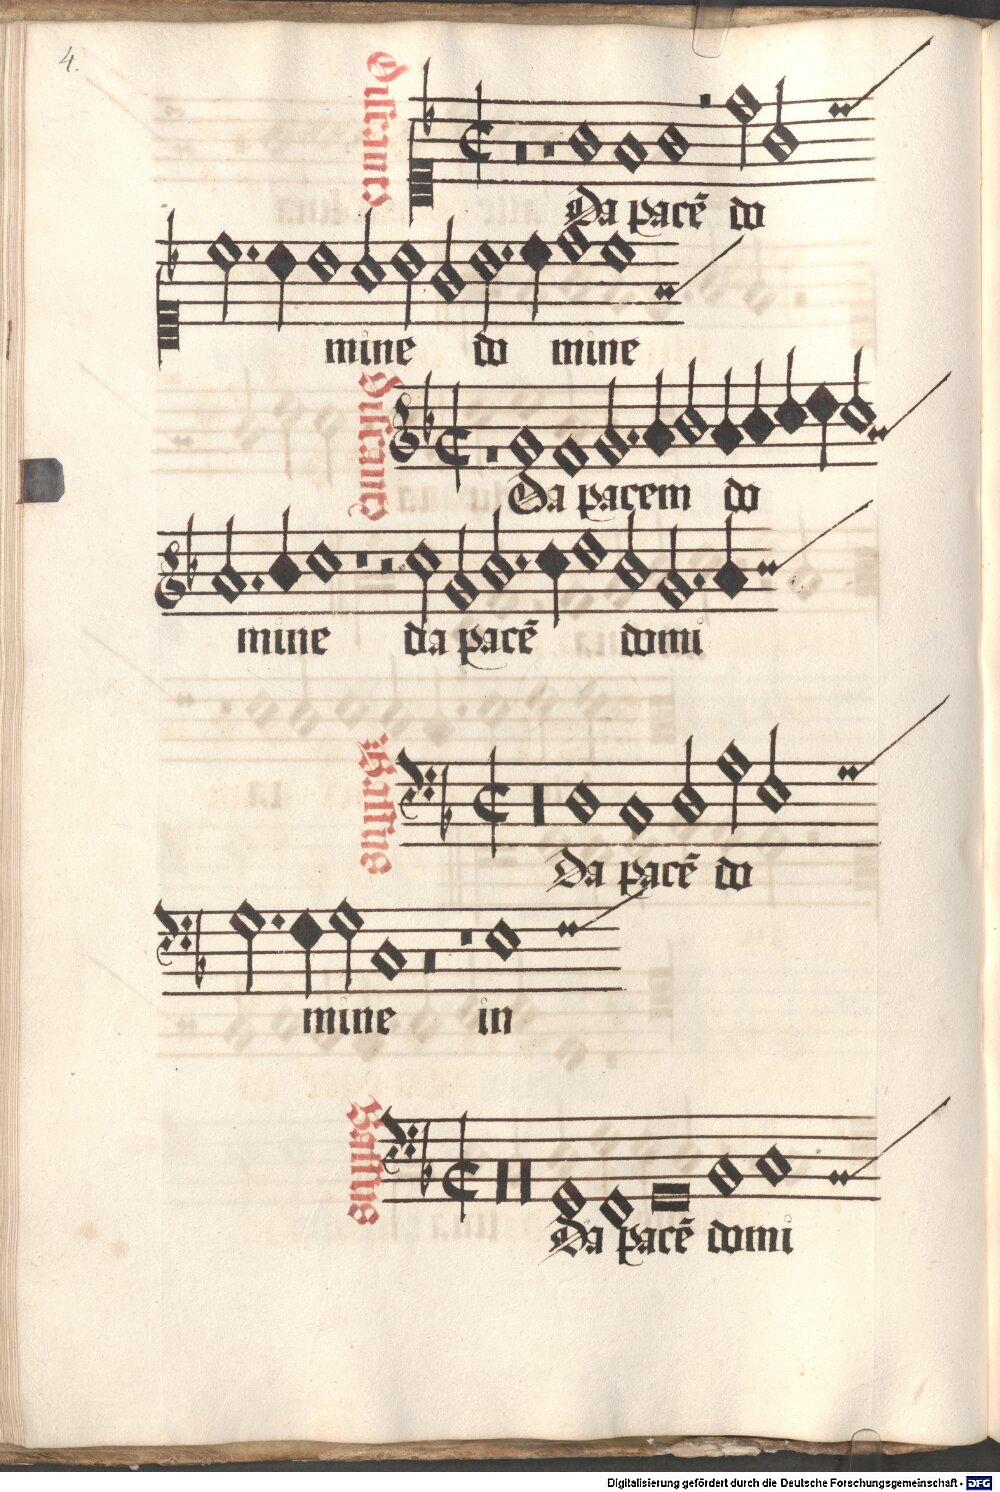 4.
Discantus
Da pacē do
mine do mine
Discantus
Da pacem do
mine da pacē domi
Bassus
Da pacē do
mine in
Bassus
Da pacē domi
Digitalisierung gefördert durch die Deutsche Forschungsgemeinschaft - DFG